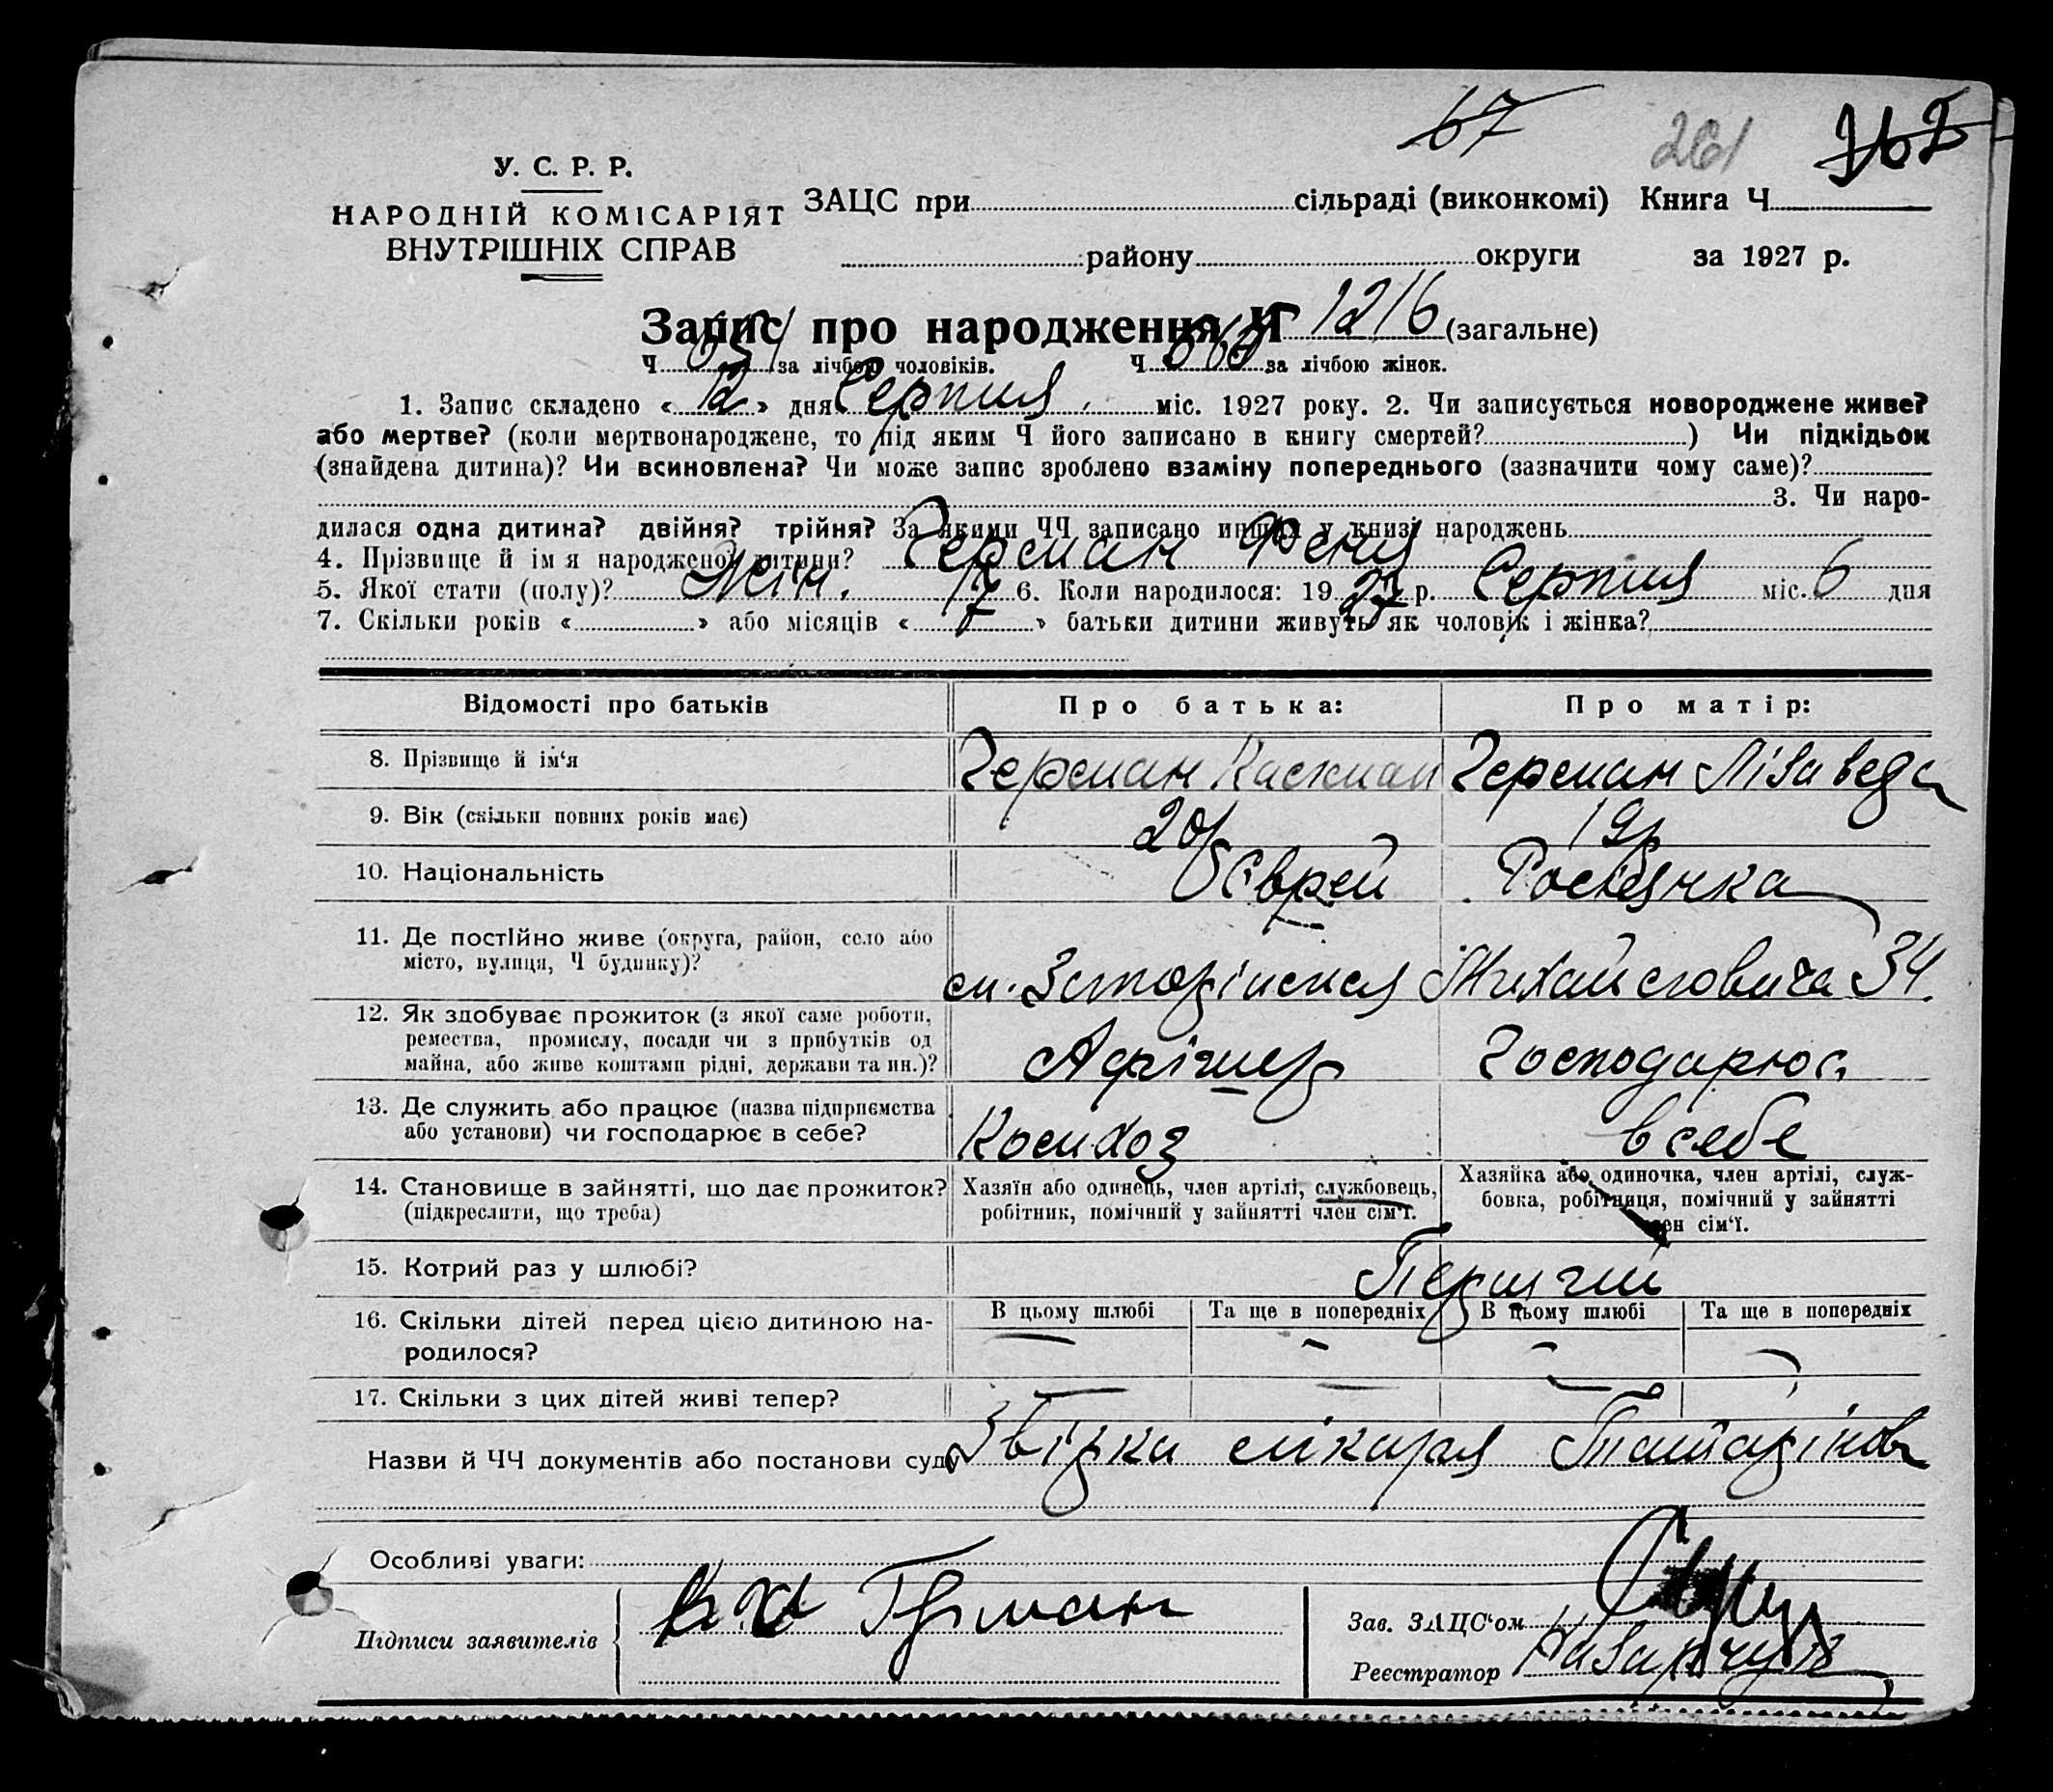 67 261 162
У. С. Р. Р.
НАРОДНІЙ КОМІСАРІЯТ
ВНУТРІШНІХ СПРАВ
ЗАЦС при сільраді (виконкомі) Книга Ч
району округи за 1927 р.
Запис про народження Ч 1216 (загальне)
Ч за лічбою чоловіків. Ч за лічбою жінок.
1. Запис складено « 12 » дня Серпня міс. 1927 року. 2. Чи записується новороджене живе?
або мертве? (коли мертвонароджене, то під яким Ч його записано в книгу смертей? ) Чи підкідьок
(знайдена дитина)? Чи всиновлена? Чи може запис зроблено взаміну попереднього (зазначити чому саме)?
3. Чи наро-
дилася одна дитина? двійня? трійня? За якими ЧЧ записано инших у книзі народжень
4. Прізвище й ім я народженої дитини? Герман Феня
5. Якої стати (полу)? Жін. 6. Коли народилося: 19 27 р. Серпня міс. 6 дня
7. Скільки років « » або місяців « » батьки дитини живуть як чоловік і жінка?
Відомості про батьків Про батька: Про матір:
8. Прізвище й ім‘я Герман Герман Лізаведа
9. Вік (скільки повних років має) 20 19
10. Національність Єврей Росіянка
11. Де постійно живе (округа, район, село або
місто, вулиця, Ч будинку)? 34.
12. Як здобуває прожиток (з якої саме роботи,
ремества, промислу, посади чи з прибутків од
майна, або живе коштами рідні, держави та ин.)? Господарює
13. Де служить або працює (назва підприємства
або установи) чи господарює в себе? в себе
14. Становище в зайнятті, що дає прожиток?
(підкреслити, що треба)
Хазяїн або одинець, член артілі, службовець,
робітник, помічний у зайнятті член сім‘ї.
Хазяйка або одиночка, член артілі, служ-
бовка, робітниця, помічний у зайнятті
член сім‘ї.
15. Котрий раз у шлюбі? Перший
16. Скільки дітей перед цією дитиною на-
родилося?
В цьому шлюбі Та ще в попередніх В цьому шлюбі Та ще в попередніх
17. Скільки з цих дітей живі тепер?
Назви й ЧЧ документів або постанови суду лікаря
Особливі уваги:
Підписи заявителів Герман
Зав. ЗАЦС‘ом
Реєстратор